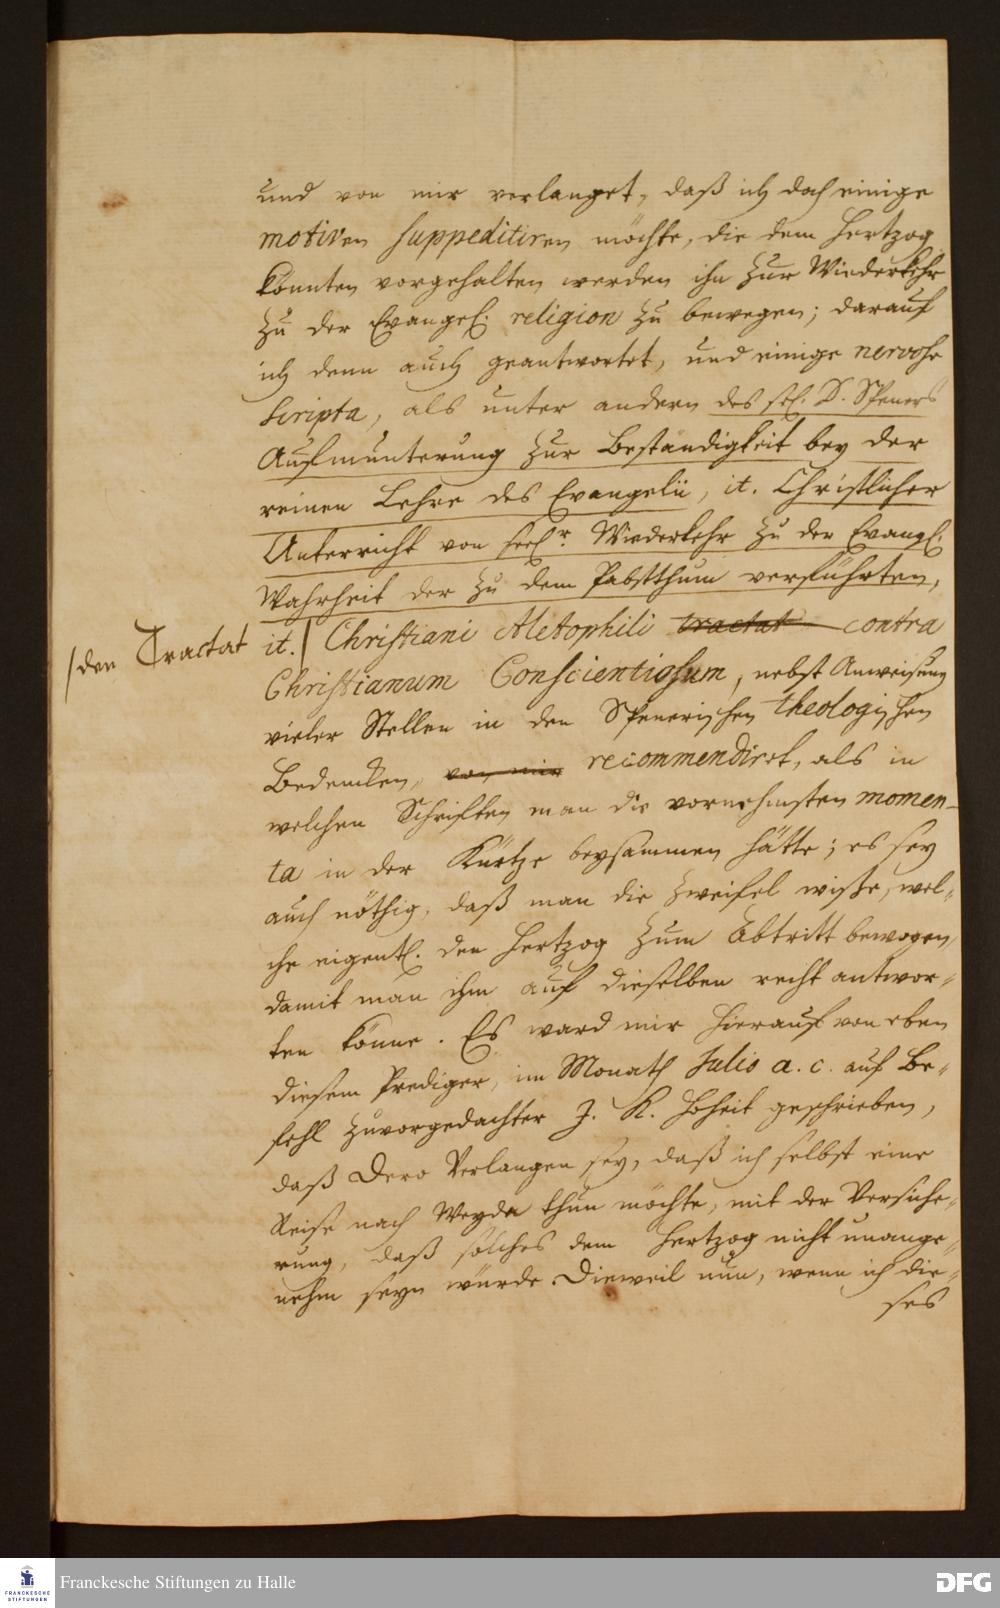 und von mir verlanget, daß ich doch einige
motiven suppeditiren möchte, die dem Hertzog
könnten vorgehalten werden ihn zur Wiederkehr
zu der Evangel. religion zu bewegen; darauf
ich denn auch geantwortet, und einige nervose
scripta, als unter andern des sel. D. Speners
Aufmunterung zur Beständigkeit bey der
reinen Lehre des Evangelii, it. Christlicher
Unterricht von seelr. Wiederkehr zu der Evangl.
Wahrheit der zu dem Pabstthum verführten,
/den Tractat it. / Christiani Aletophili tractat contra
Christianum Conscientiosum, nebst Anweisung
vieler Stellen in den Spenerischen theologischen
Bedencken, von mir recommendiret, als in
welchen Schrifften man die vornehmsten momen-
ta in der Kürtze beysammen hätte; es sey
auch nöthig, daß man die Zweifel wisse, wel-
che eigentl. den Hertzog zum Abtritt bewogen,
damit man ihm auf dieselben recht antwor-
ten könne. Es ward mir hierauf von eben
diesem Prediger, im Monath Julio a. c. auf Be-
fehl zuvorgedachter J. K. Hoheit geschrieben,
daß Dero Verlangen sey, daß ich selbst eine
Reise nach Weyda thun möchte, mit der Versiche-
rung, daß solches dem Hertzog nicht unange-
nehm seyn würde. Dieweil nun, wenn ich die-
ses
Franckesche Stiftungen zu Halle
FRANCKESCHE
STIFTUNGEN
DFG